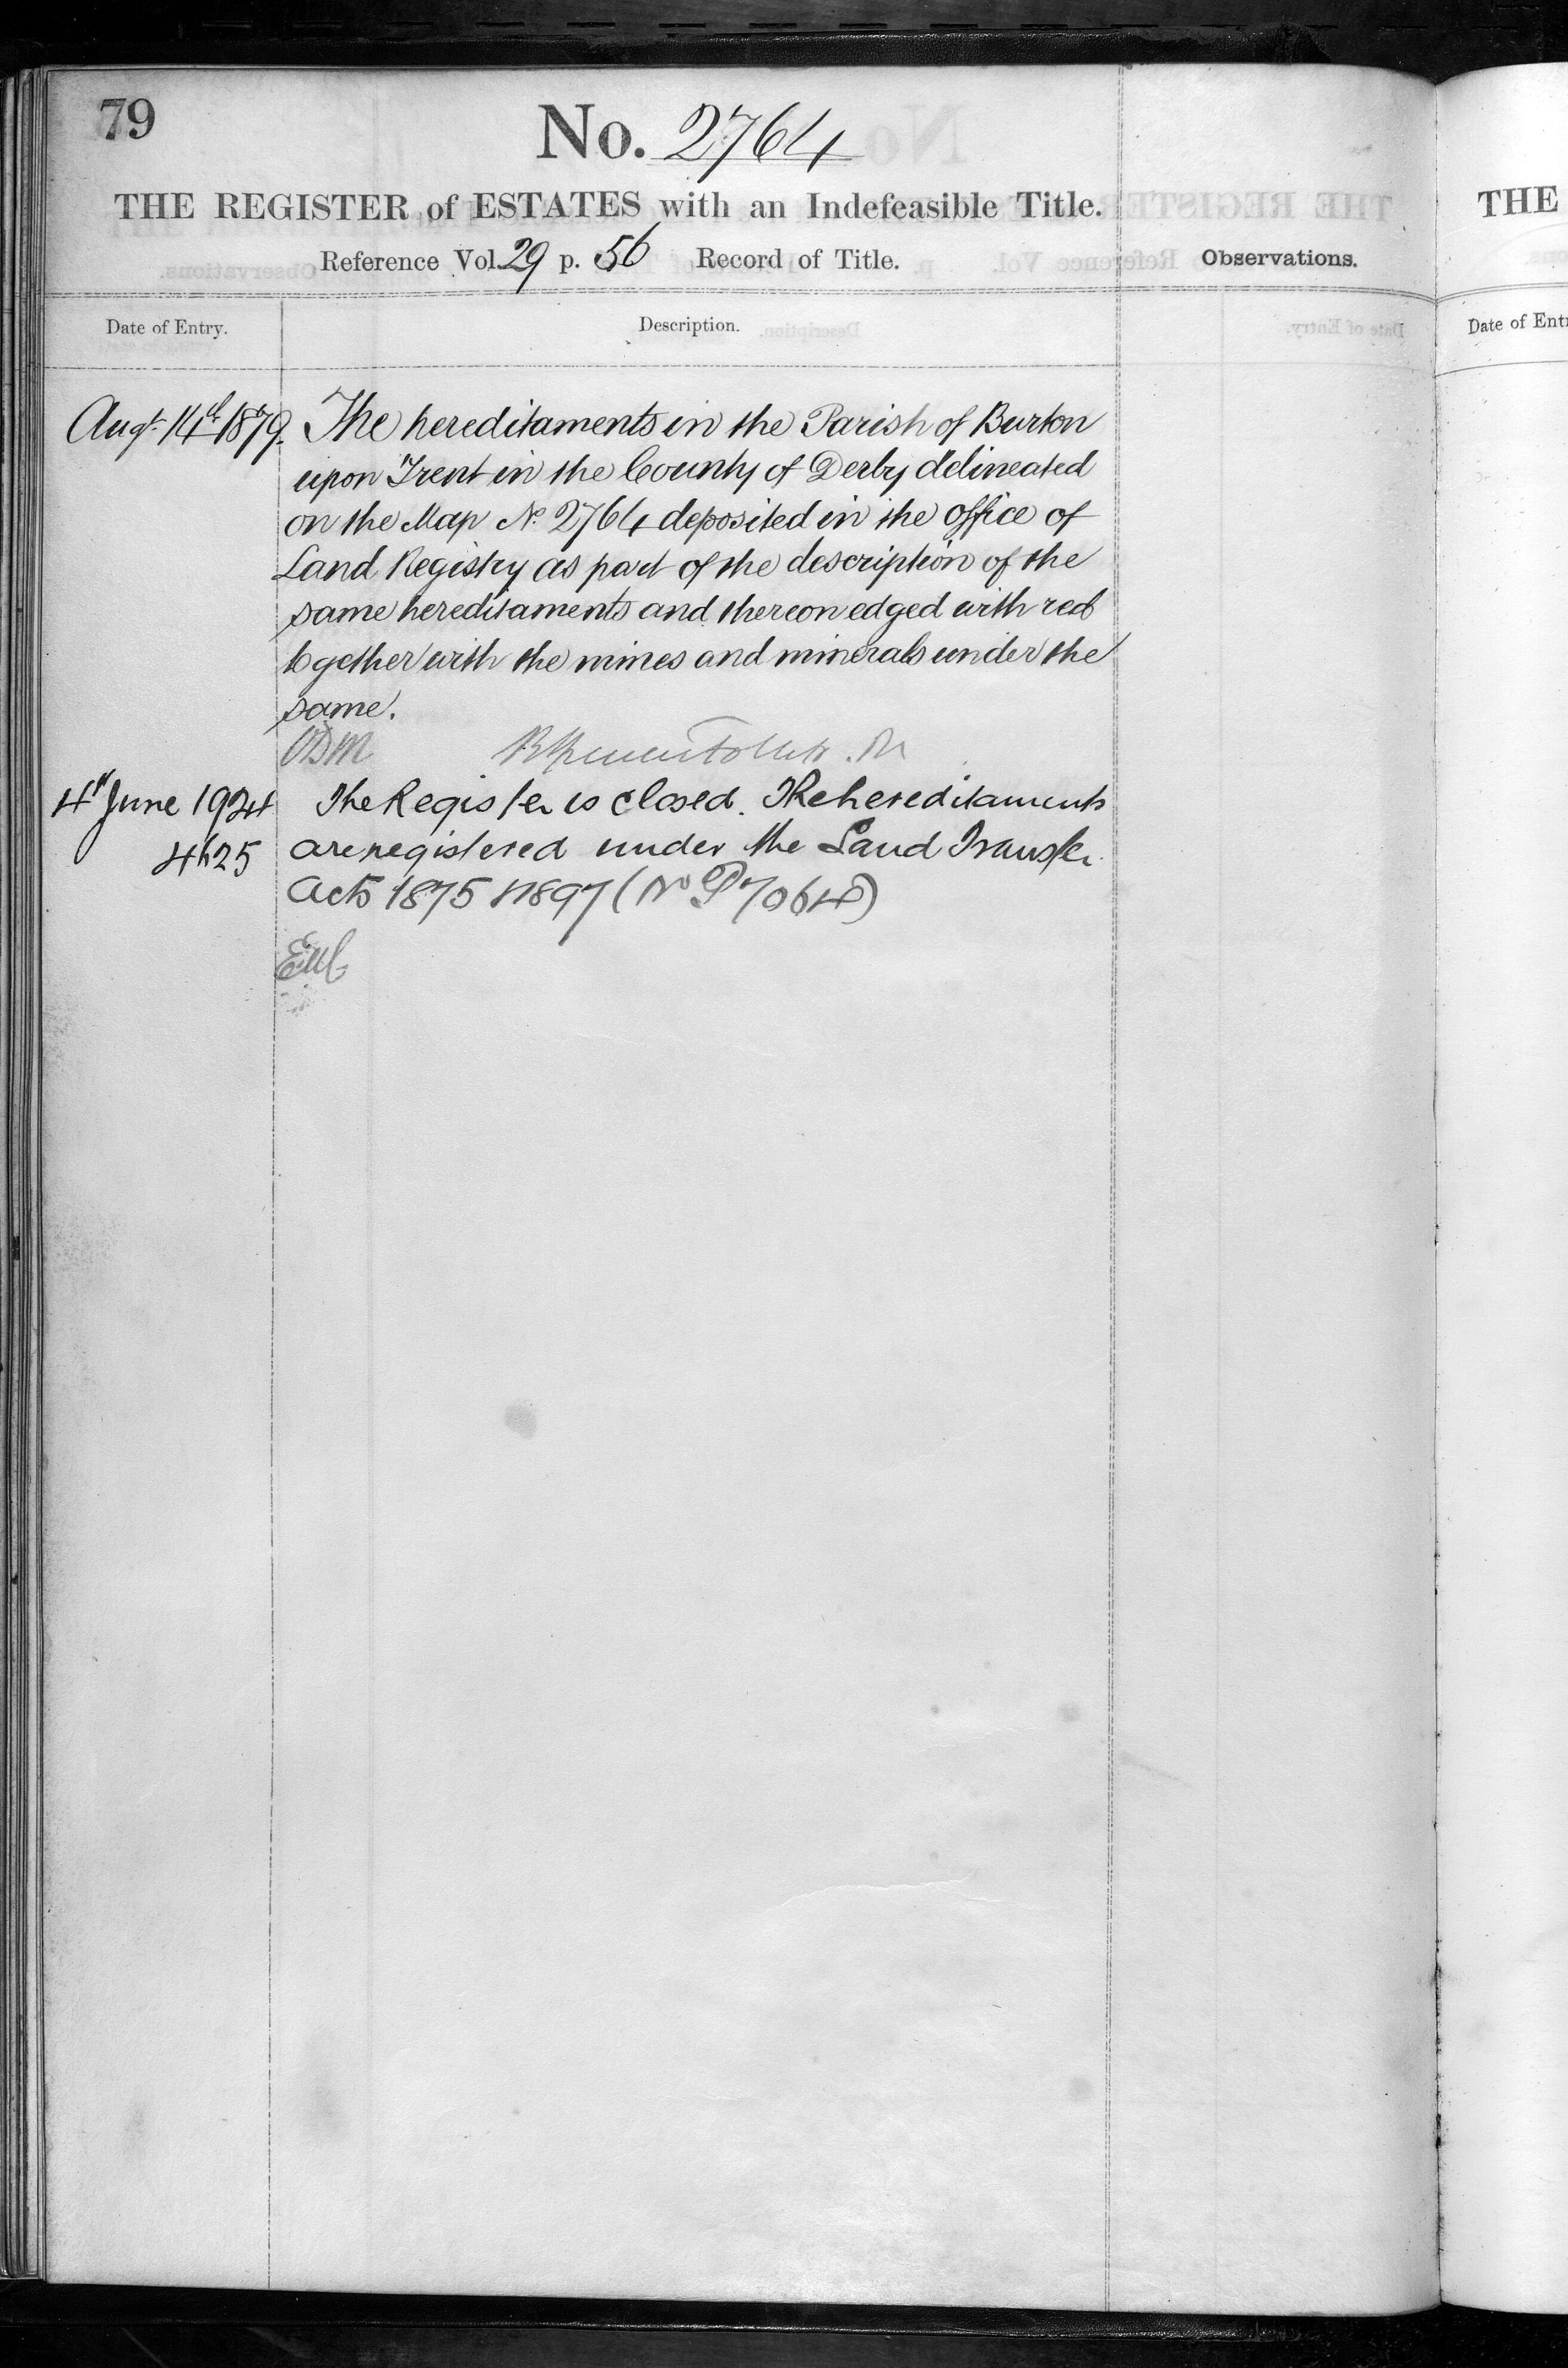 79
No. 2764
THE REGISTER of ESTATES with an Indefeasible Title.
Reference Vol. 29 p. 56 Record of Title.
Observations.
Date of Entry.
Description.
Augt. 14th 1879. The hereditaments in the Parish of Burton
upon Trent in the County of Derby delineated
on the Map No. 2764 deposited in the office of
Land Registry as part of the description of the
same hereditaments and thereon edged with red
together with the mines and minerals under the
same.
4th June 1924 The Register is closed. The hereditaments
are registered under the Land Transfer
Acts 1875 & 1897 (No P7064)
THE
Date of Ent